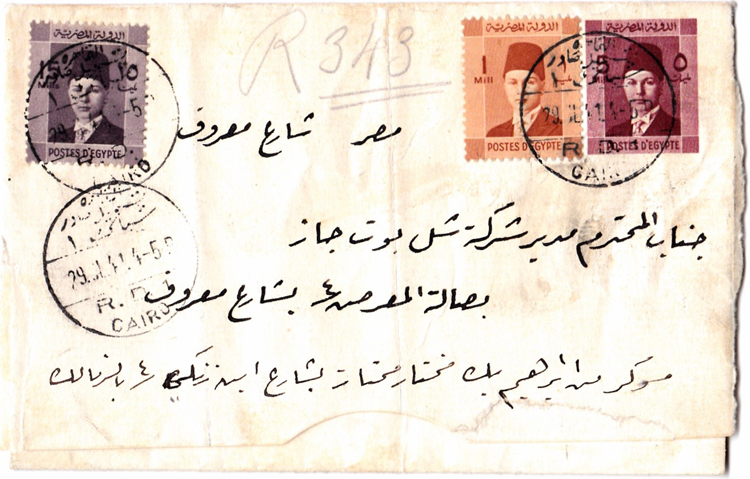 R 343
الدولة المصرية
١٥ 15
POSTES D'EGYPTE
الدولة المصرية
1 Mill
POSTES D'EGYPTE
الدولة المصرية
5 ٥
POSTES D'EGYPTE
29.JL.41.4-5P
R.D.
CAIRO
مصر شارع معروف
جناب المحترم مدير شركة شل بوت جاز
29.JL.41.4-5P
R.D.
CAIRO
بصالة المعرض ٤ بشارع معروف
من ابراهيم بك مختار بشارع ابن زنكى ٤ بالزمالك